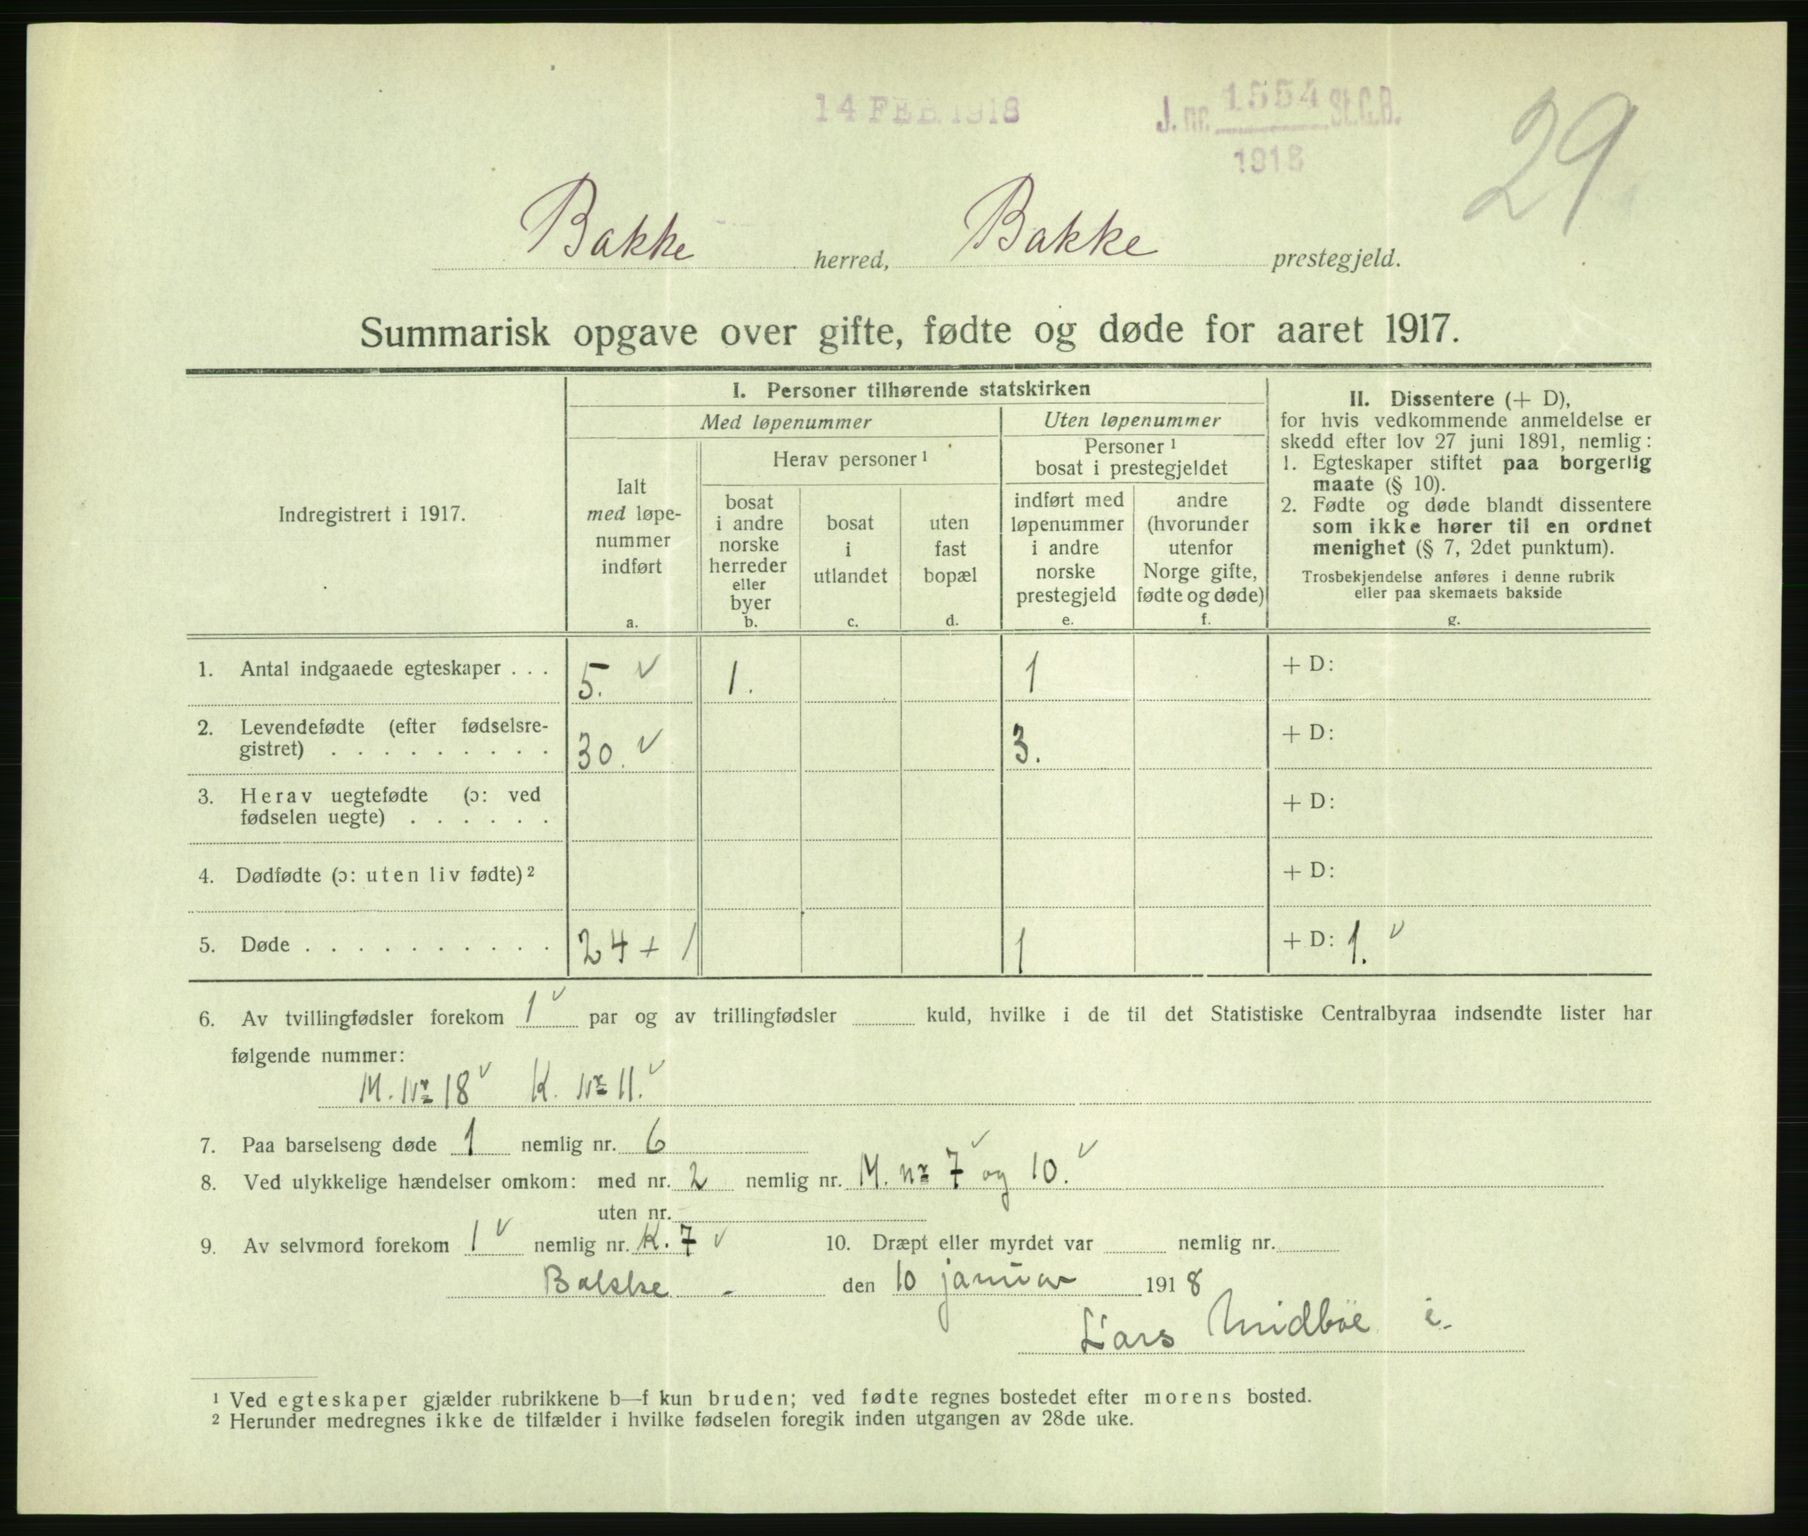 14 FEB. 1918
J. nr. 1554 St.C.B.
1918
29
Bakke herred, Bakke prestegjeld.
Summarisk opgave over gifte, fødte og døde for aaret 1917.
Indregistrert i 1917.
I. Personer tilhørende statskirken
Med løpenummer
Uten løpenummer
Ialt
med løpe-
nummer
indført
a.
Herav personer 1
bosat
i andre
norske
herreder
eller
byer
b.
bosat
i
utlandet
c.
uten
fast
bopæl
d.
Personer 1
bosat i prestegjeldet
indført med
løpenummer
i andre
norske
prestegjeld
e.
andre
(hvorunder
utenfor
Norge gifte,
fødte og døde)
f.
II. Dissentere (+ D),
for hvis vedkommende anmeldelse er
skedd efter lov 27 juni 1891, nemlig:
1. Egteskaper stiftet paa borgerlig
maate (§ 10).
2. Fødte og døde blandt dissentere
som ikke hører til en ordnet
menighet (§ 7, 2det punktum).
Trosbekjendelse anføres i denne rubrik
eller paa skemaets bakside
g.
1. Antal indgaaede egteskaper . . . 5. ✓ 1. 1 + D:
2. Levendefødte (efter fødselsre-
gistret) . . . . . . . . . 30. ✓ 3. + D:
3. Herav uegtefødte (ɔ: ved
fødselen uegte) . . . . . . + D:
4. Dødfødte (ɔ: uten liv fødte) 2 + D:
5. Døde . . . . . . . . . . 24 + 1 1 + D: 1. ✓
6. Av tvillingfødsler forekom 1 ✓ par og av trillingfødsler kuld, hvilke i de til det Statistiske Centralbyraa indsendte lister har
følgende nummer:
M. Nr 18 ✓ K. Nr 11. ✓
7. Paa barselseng døde 1 nemlig nr. 6
8. Ved ulykkelige hændelser omkom: med nr. 2 nemlig nr. M. nr 7 ✓ og 10. ✓
uten nr.
9. Av selvmord forekom 1 ✓ nemlig nr. K. 7 ✓ 10. Dræpt eller myrdet var nemlig nr.
Bakke - den 10 januar 1918
Lars Midbøe
1 Ved egteskaper gjælder rubrikkene b—f kun bruden; ved fødte regnes bostedet efter morens bosted.
2 Herunder medregnes ikke de tilfælder i hvilke fødselen foregik inden utgangen av 28de uke.